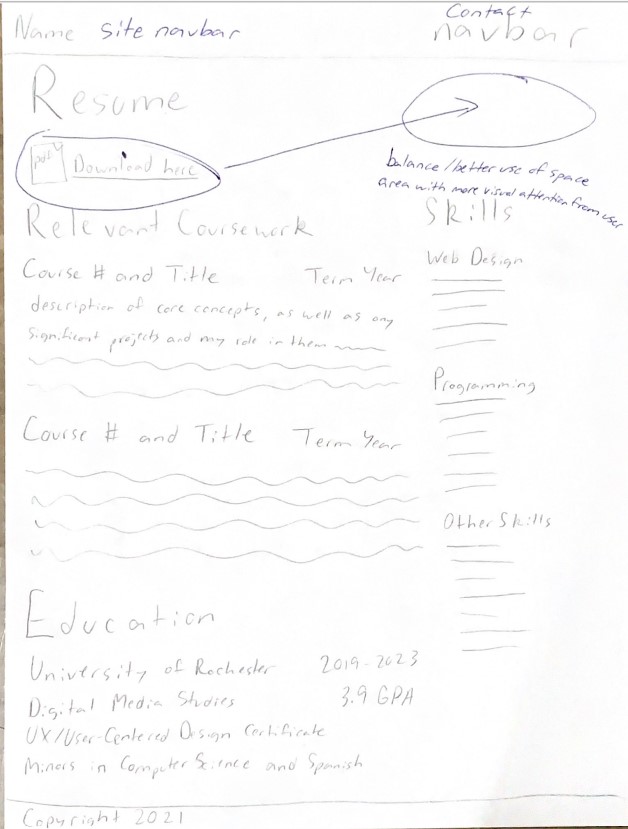 Name site navbar
Contact
navbar
Resume
pdf
Download here
balance/better use of space
area with more visual attention from user
Relevant Coursework
Skills
Course # and Title Term Year
description of core concepts, as well as any
significant projects and my role in them
Web Design
Programming
Course # and Title Term Year
Other Skills
Education
University of Rochester 2019-2023
Digital Media Studies 3.9 GPA
UX/User-Centered Design Certificate
Minors in Computer Science and Spanish
Copyright 2021